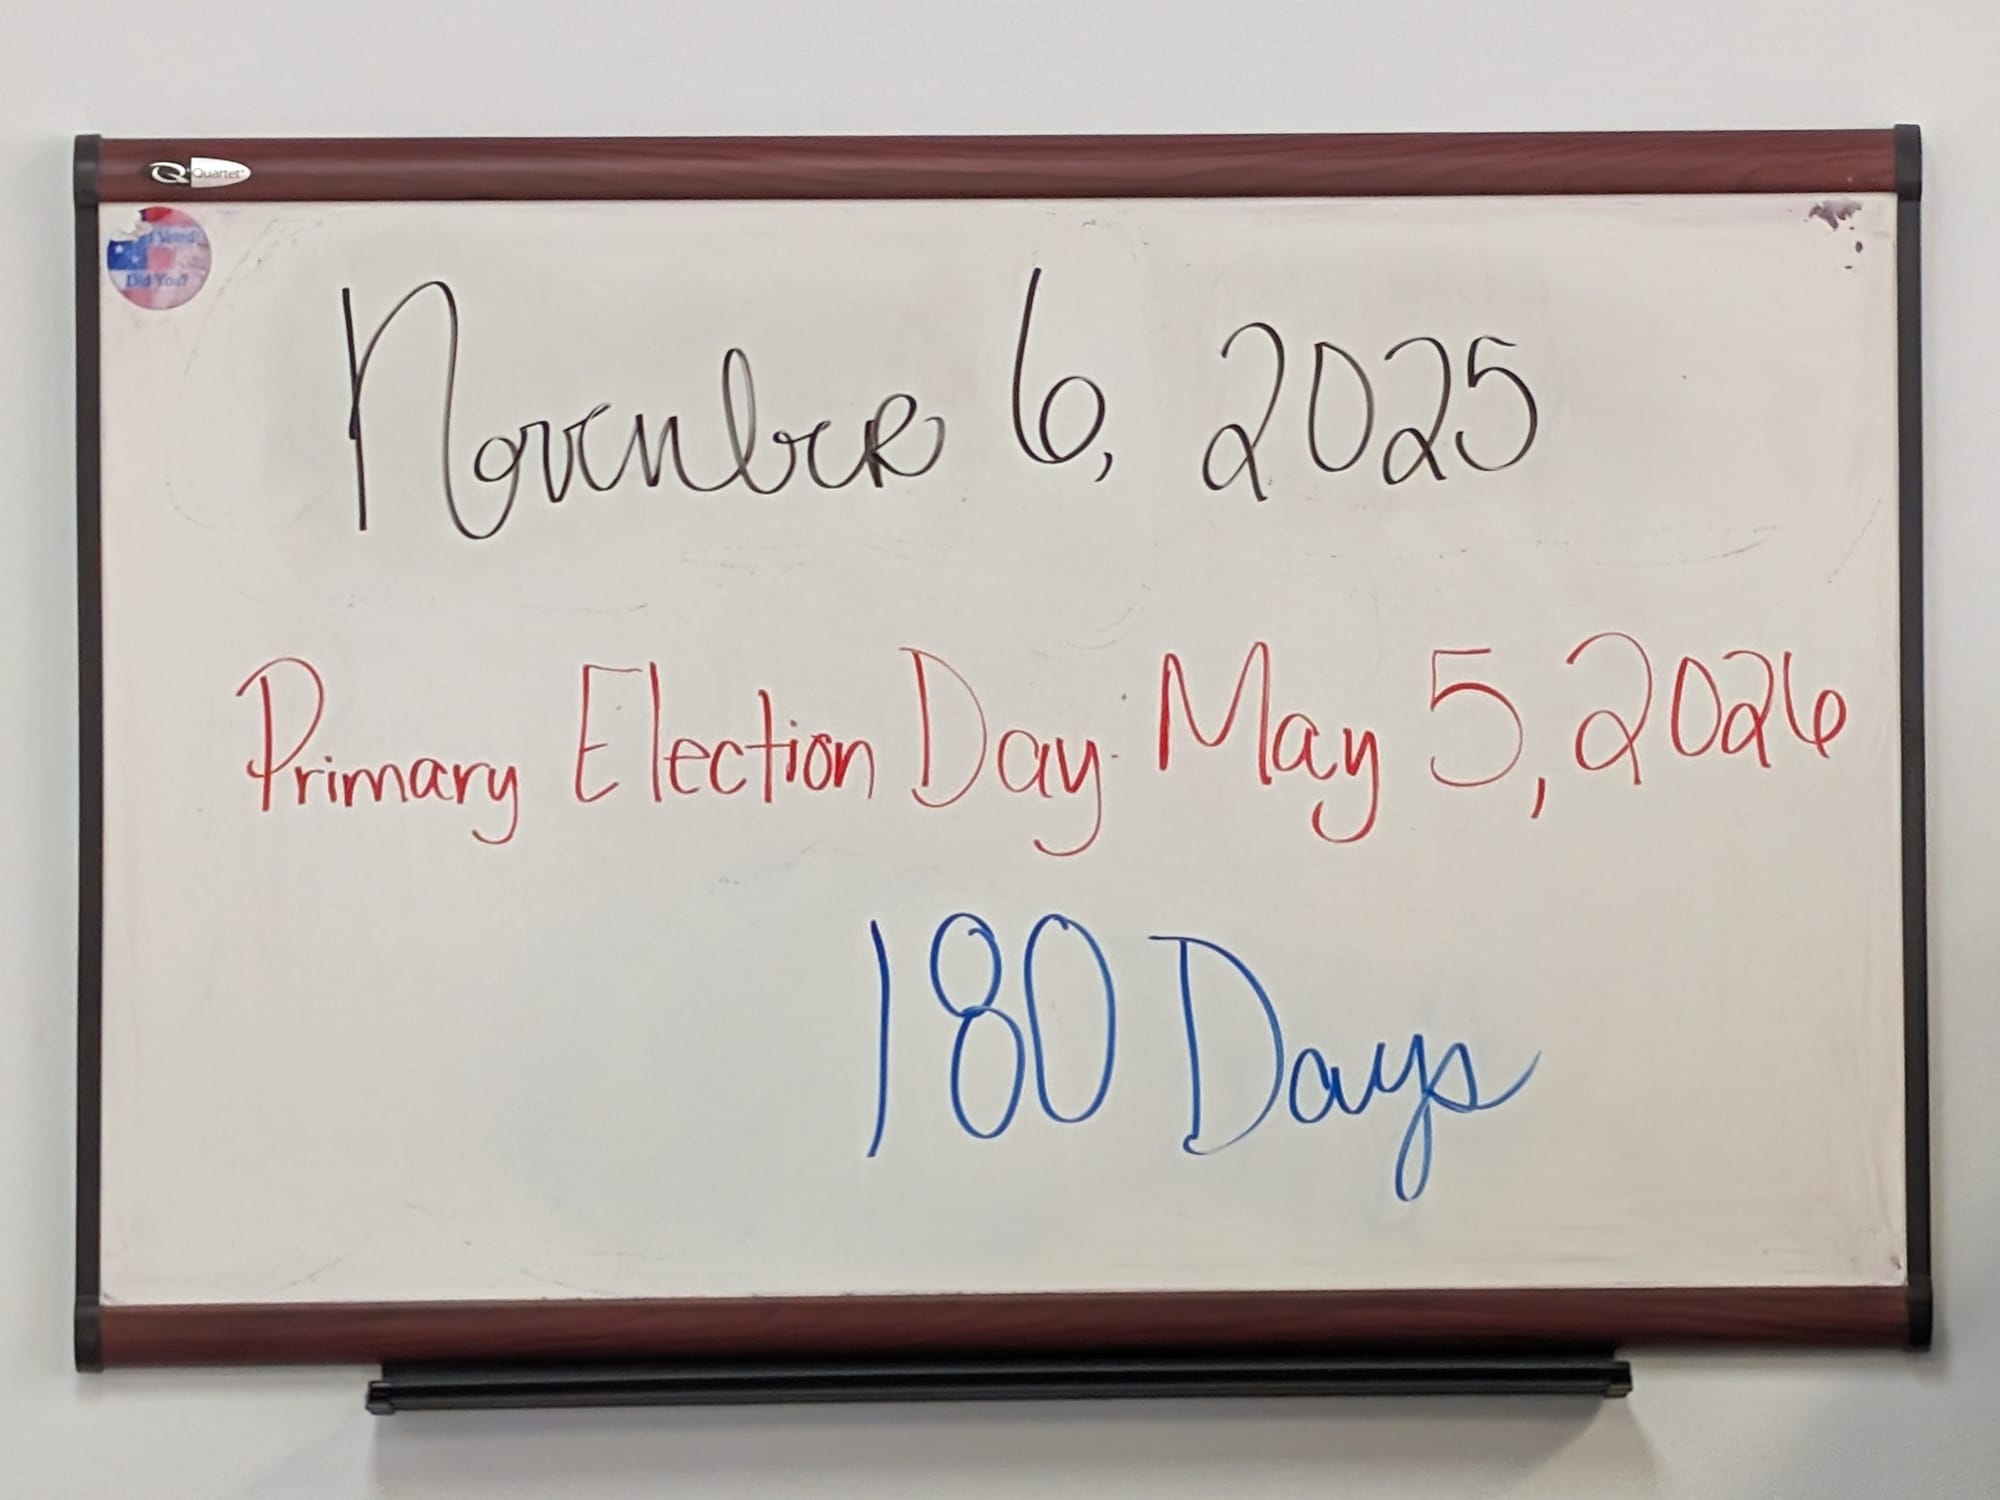 Quartet
I Voted!
Did You?
November 6, 2025
Primary Election Day: May 5, 2026
180 Days